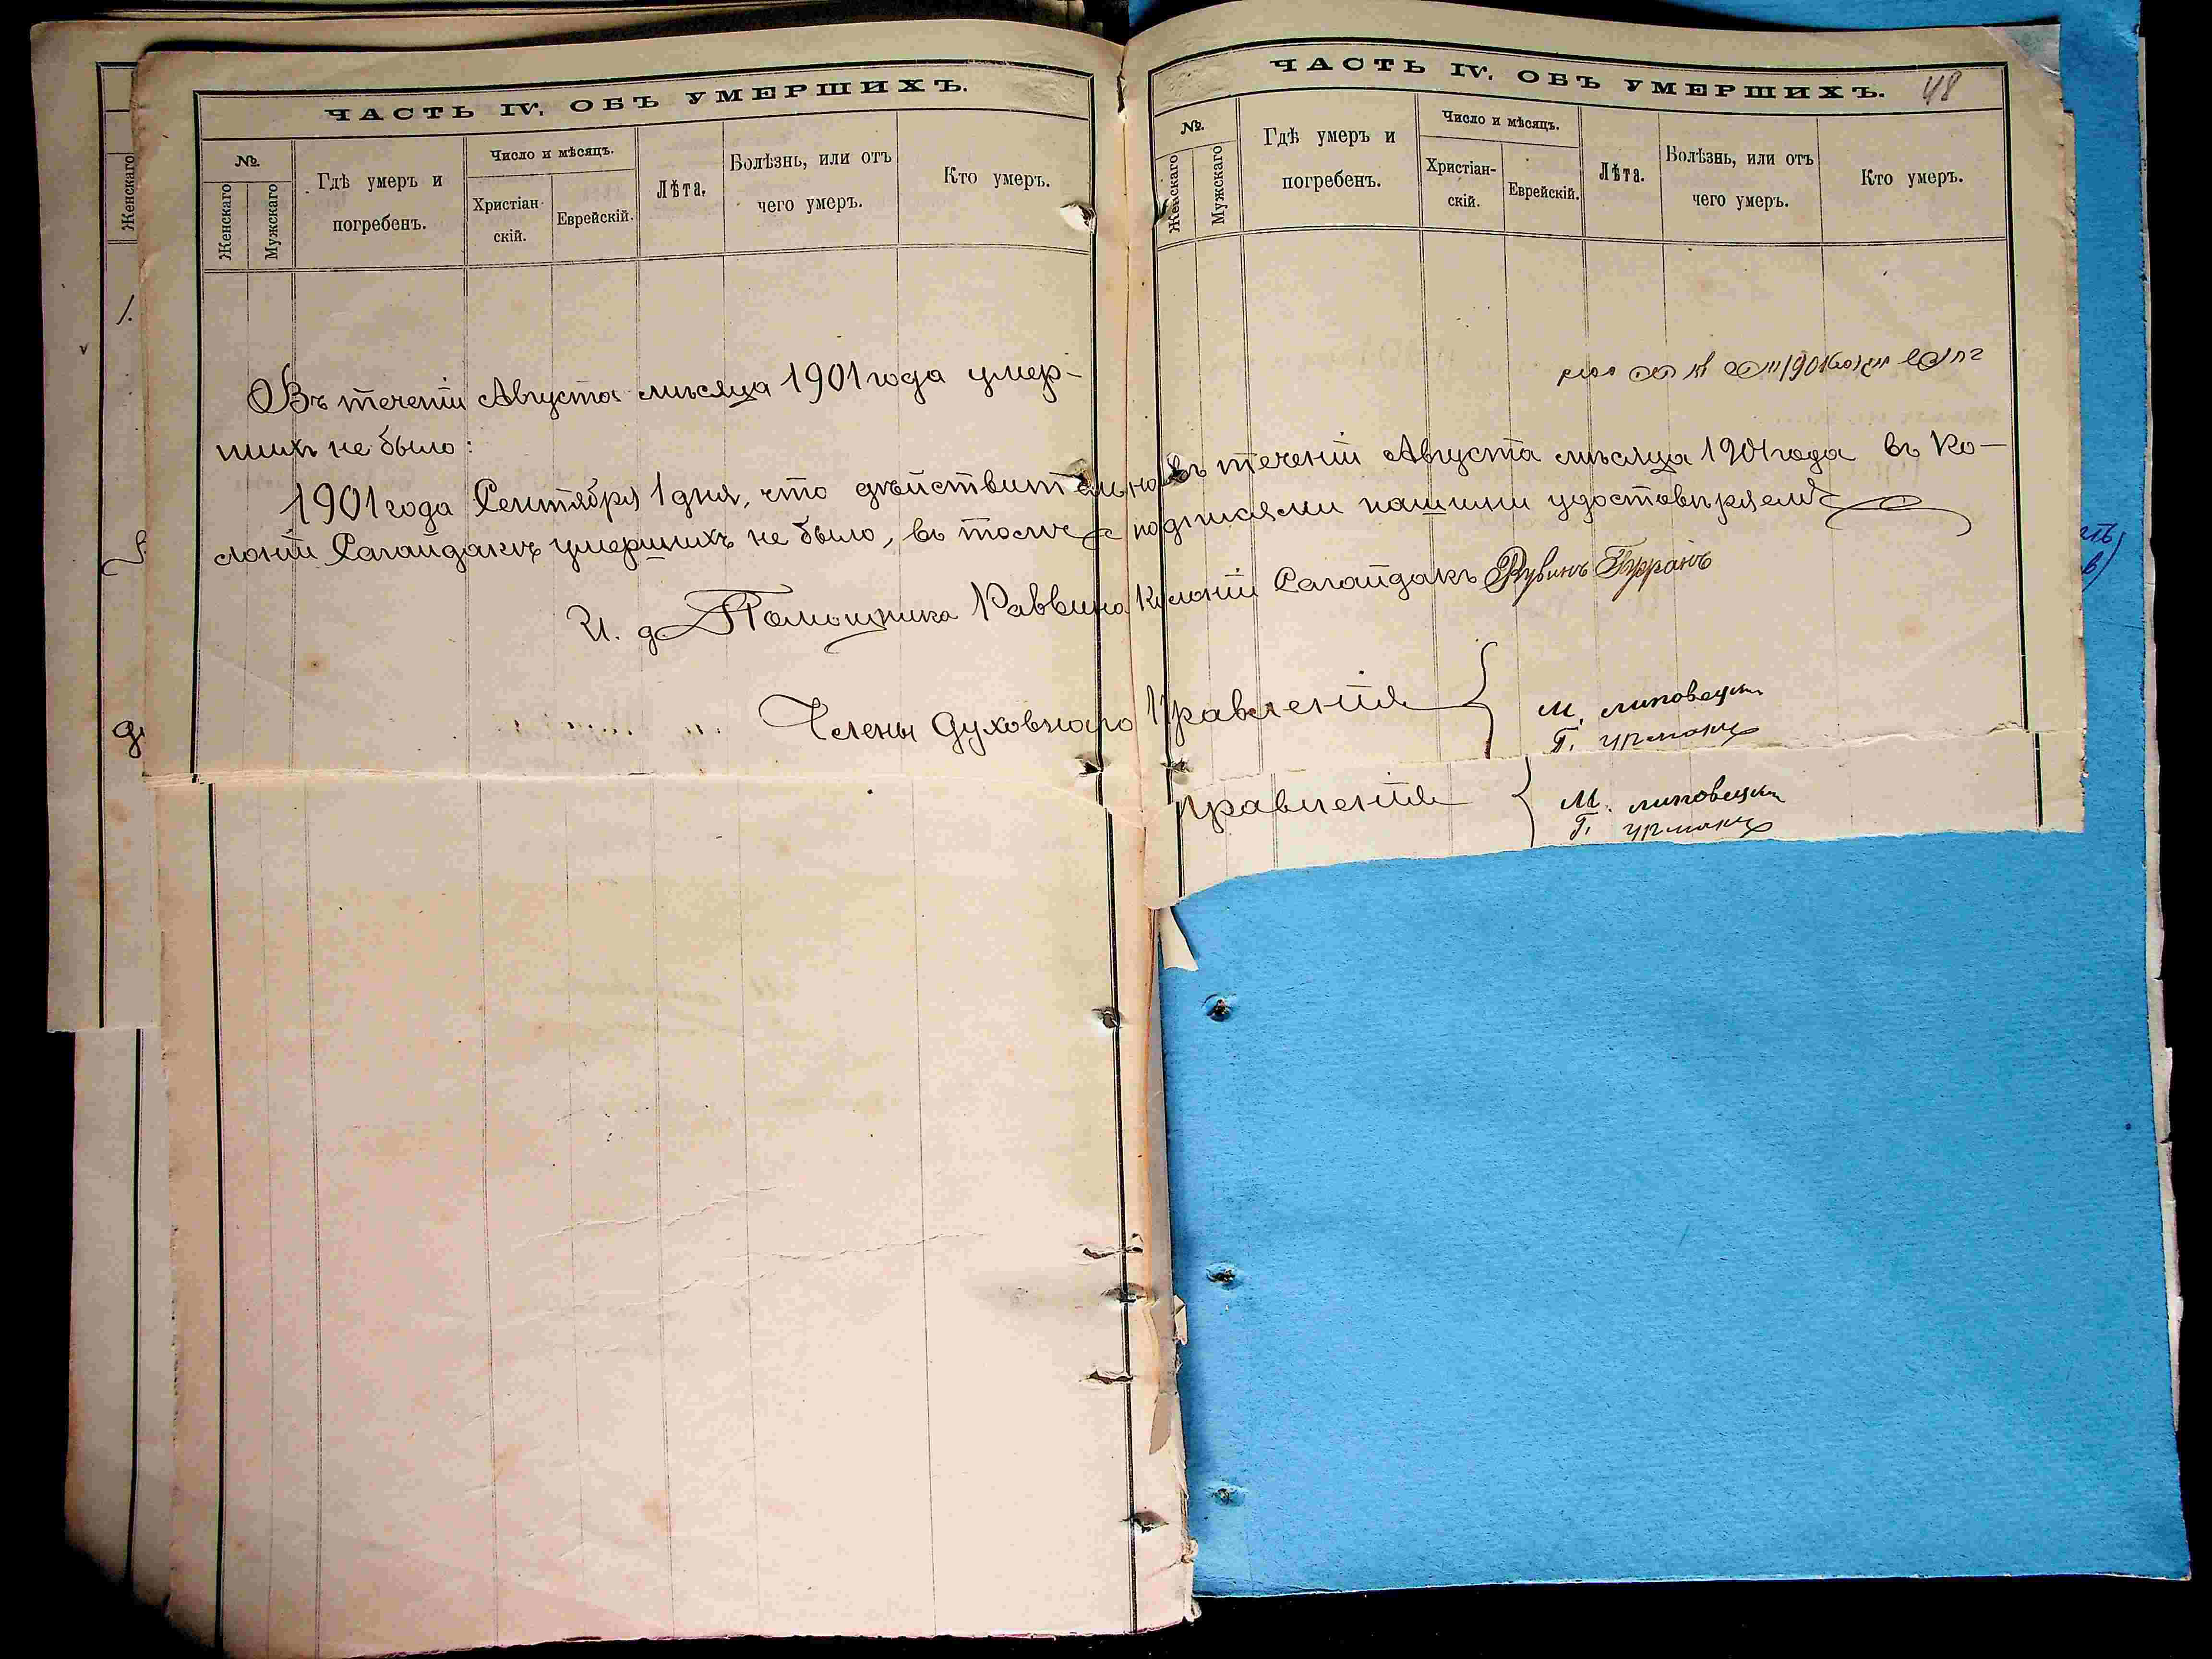 ЧАСТЬ IV. ОБЪ УМЕРШИХЪ.
№.
Женскаго
Мужскаго
Гдѣ умеръ и погребенъ.
Число и мѣсяцъ.
Христіан-
скій.
Еврейскій.
Лѣта.
Болѣзнь, или отъ
чего умеръ.
Кто умеръ.
ЧАСТЬ IV. ОБЪ УМЕРШИХЪ.
48
№.
Женскаго
Мужскаго
Гдѣ умеръ и
погребенъ.
Число и мѣсяцъ.
Христіан-
скій.
Еврейскій.
Лѣта.
Болѣзнь, или отъ
чего умеръ.
Кто умеръ.
Женскаго
1.
Въ теченіи Августа мѣсяца 1901 года умер-
шихъ не было:
1901 года Сентября 1 дня, что дѣйствительно въ теченіи Августа мѣсяца 1901 года въ Ко-
лоніи Сагайдакъ умершихъ не было, въ томъ подписями нашими удостовѣряемъ
И. д. Помощника Раввина Колоніи Сагайдакъ Рувинъ
Члены Духовнаго Правленія
М. Липовецки
Г.
Правленія
М. Липовецки
Г.